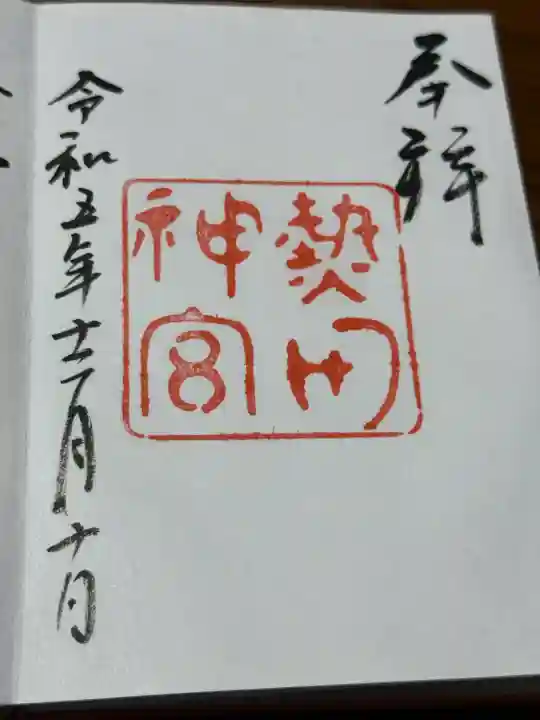 奉拝
熱田
神宮
令和五年十二月十日